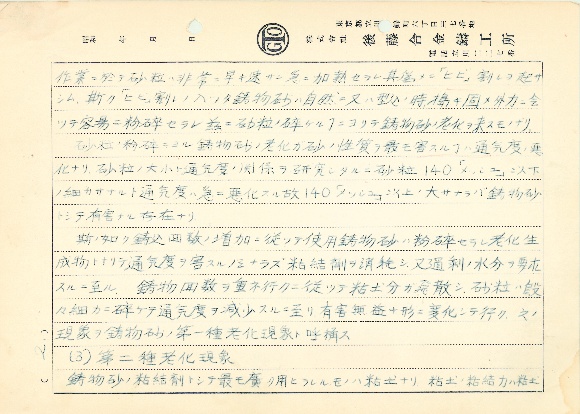 昭和 年 月 日
株式会社 後藤合金鋳工所
作業ニ於テ砂粒ハ非常ニ早キ速サニ急ニ加熱セラレ其度メニ「ヒビ」割レヲ起サ
シム、斯ク「ヒビ」割レノ入ツタ鋳物砂ハ自然ニ又ハ型込ノ時搗キ固メ外力ニ会
ツテ容易ニ粉砕セラレ茲ニ砂粒ノ砕ケルコトニヨリテ鋳物砂ノ老化ヲ来スモノナリ.
砂粒ノ粉砕ニヨル鋳物砂ノ老化ガ砂ノ性質ヲ最モ害スルノハ通気度ノ悪
化ナリ. 砂粒ノ大小ト通気度ノ関係ヲ研究シタルニ砂粒140「メッシュ」以下
ノ細カサナルト通気度ハ急ニ悪化スル故140「メッシュ」以上ノ大サナラバ鋳物砂
トシテ有害ナル存在ナリ
斯ノ如ク鋳込回数ノ増加ニ従ツテ使用鋳物砂ハ粉砕セラレ老化生
成物トナリテ通気度ヲ害スルノミナラズ粘結剤ヲ消耗シ、又過剰ノ水分ヲ要求
スルニ至ル. 鋳物回数ヲ重ネ行クニ従ツテ粘土分ガ飛散シ、砂粒ハ段
々細カニ砕ケテ通気度ヲ減少スルニ至リ有害無益ナ形ニ変化シテ行ク、之ノ
現象ヲ鋳物砂ノ第一種老化現象ト呼稱ス
(3) 第二種老化現象
鋳物砂ノ粘結剤トシテ最モ廣ク用ヒラレルモノハ粘土ナリ 粘土ノ粘結力ハ粘土